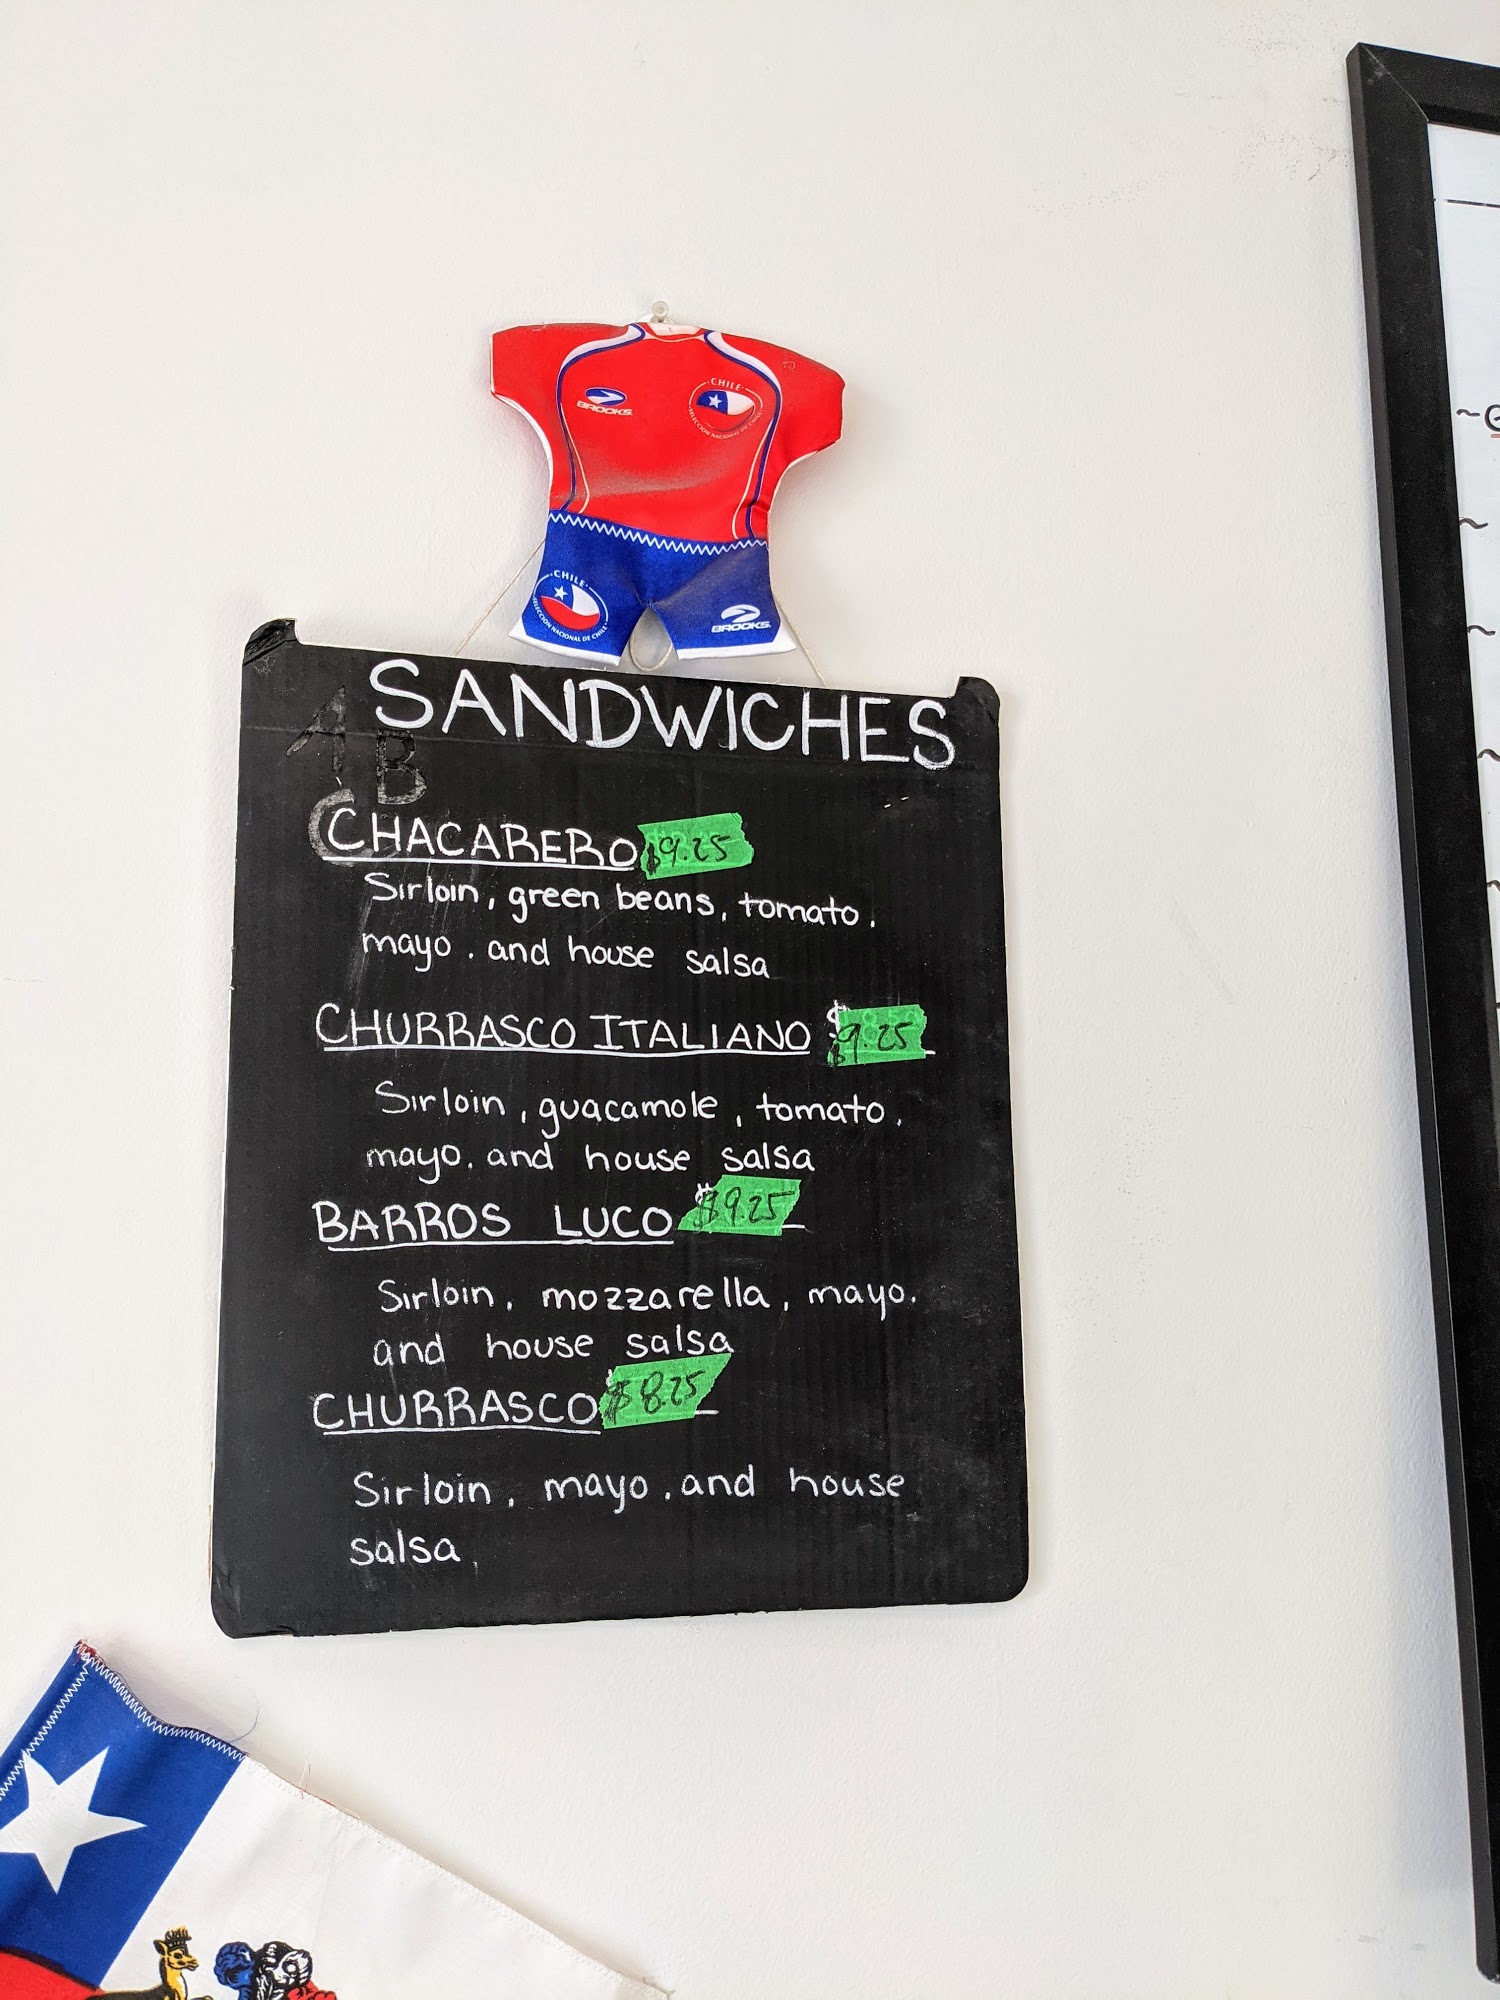 CHILE
BROOKS
SELECCION NACIONAL DE CHILE
CHILE
SELECCION NACIONAL DE CHILE
BROOKS
SANDWICHES
A
B
CHACARERO $9.25
Sirloin, green beans, tomato,
mayo, and house salsa
CHURRASCO ITALIANO $9.25
Sirloin, guacamole, tomato,
mayo, and house salsa
BARROS LUCO $9.25
Sirloin, mozzarella, mayo,
and house salsa
CHURRASCO $8.25
Sirloin, mayo, and house
salsa